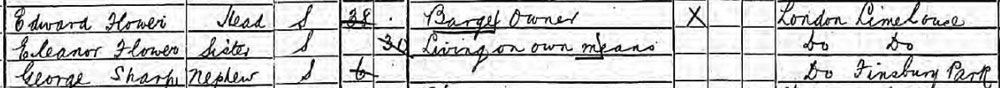 Edward Flower Head S 38 Barge Owner X London Limehouse
Eleanor Flower Sister S 30 Living on own means Do Do
George Sharp Nephew S 6 Do Finsbury Park